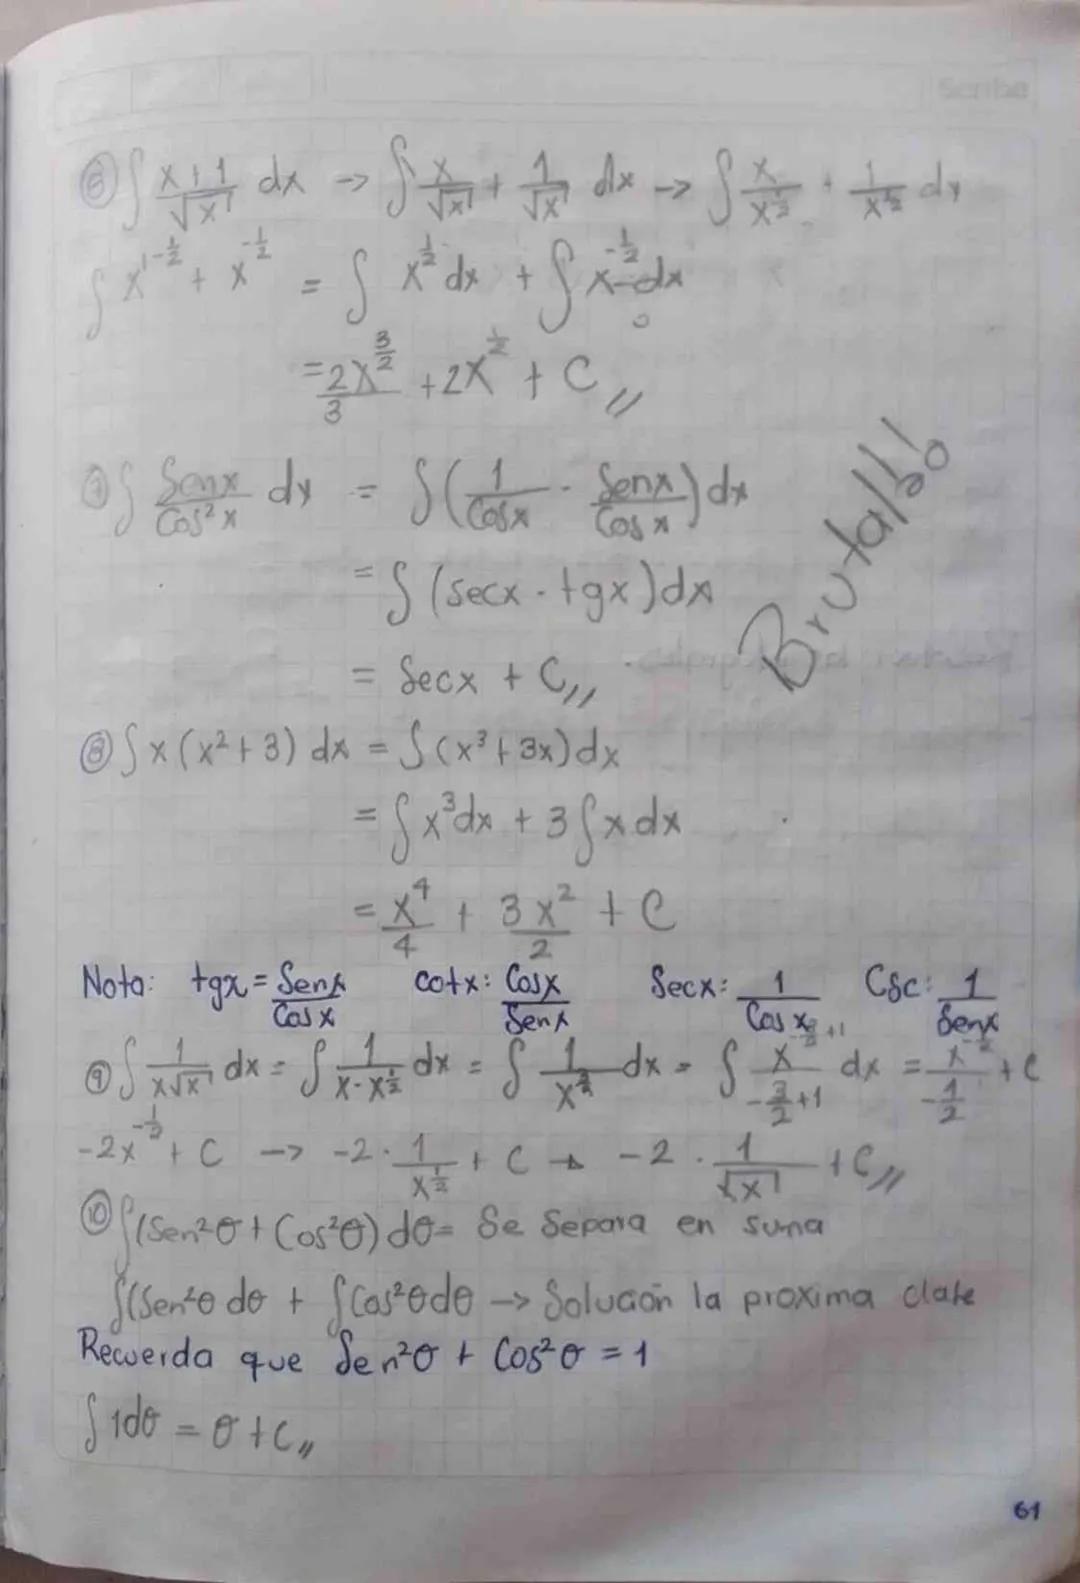 Scribe
⑥ ∫ x+1/√x dx -> ∫ x/√x + 1/√x dx -> ∫ x/x^½ + 1/x^½ dx
∫ x^(1-½) + x^(-½) = ∫ x^½ dx + ∫ x^(-½) dx
= 2x^(3/2)/3 + 2x^½ + C //
⑦ ∫ Senx/Cos²x dx = ∫ (1/Cosx · Senx/Cosx) dx
= ∫ (secx · tgx) dx
= Secx + C //
Brutal!!
⑧ ∫ x (x² + 3) dx = ∫ (x³ + 3x) dx
= ∫ x³dx + 3 ∫ x dx
= x⁴/4 + 3x²/2 + C
Nota: tgx = Senx/Cosx cotx: Cosx/Senx Secx: 1/Cosx Csc: 1/Senx
⑨ ∫ 1/x√x dx = ∫ 1/x·x^½ dx = ∫ 1/x^(3/2) dx = ∫ x^(-3/2+1)/(-3/2+1) dx = x^(-½)/(-½) + C
-2x^(-½) + C -> -2 · 1/x^½ + C -> -2 · 1/√x + C //
⑩ ∫ (Sen²θ + Cos²θ) dθ = Se Separa en suma
∫ (Sen²θ dθ + ∫ Cos²θ dθ -> Solución la proxima clase
Recuerda que Sen²θ + Cos²θ = 1
∫ 1dθ = θ + C //
61